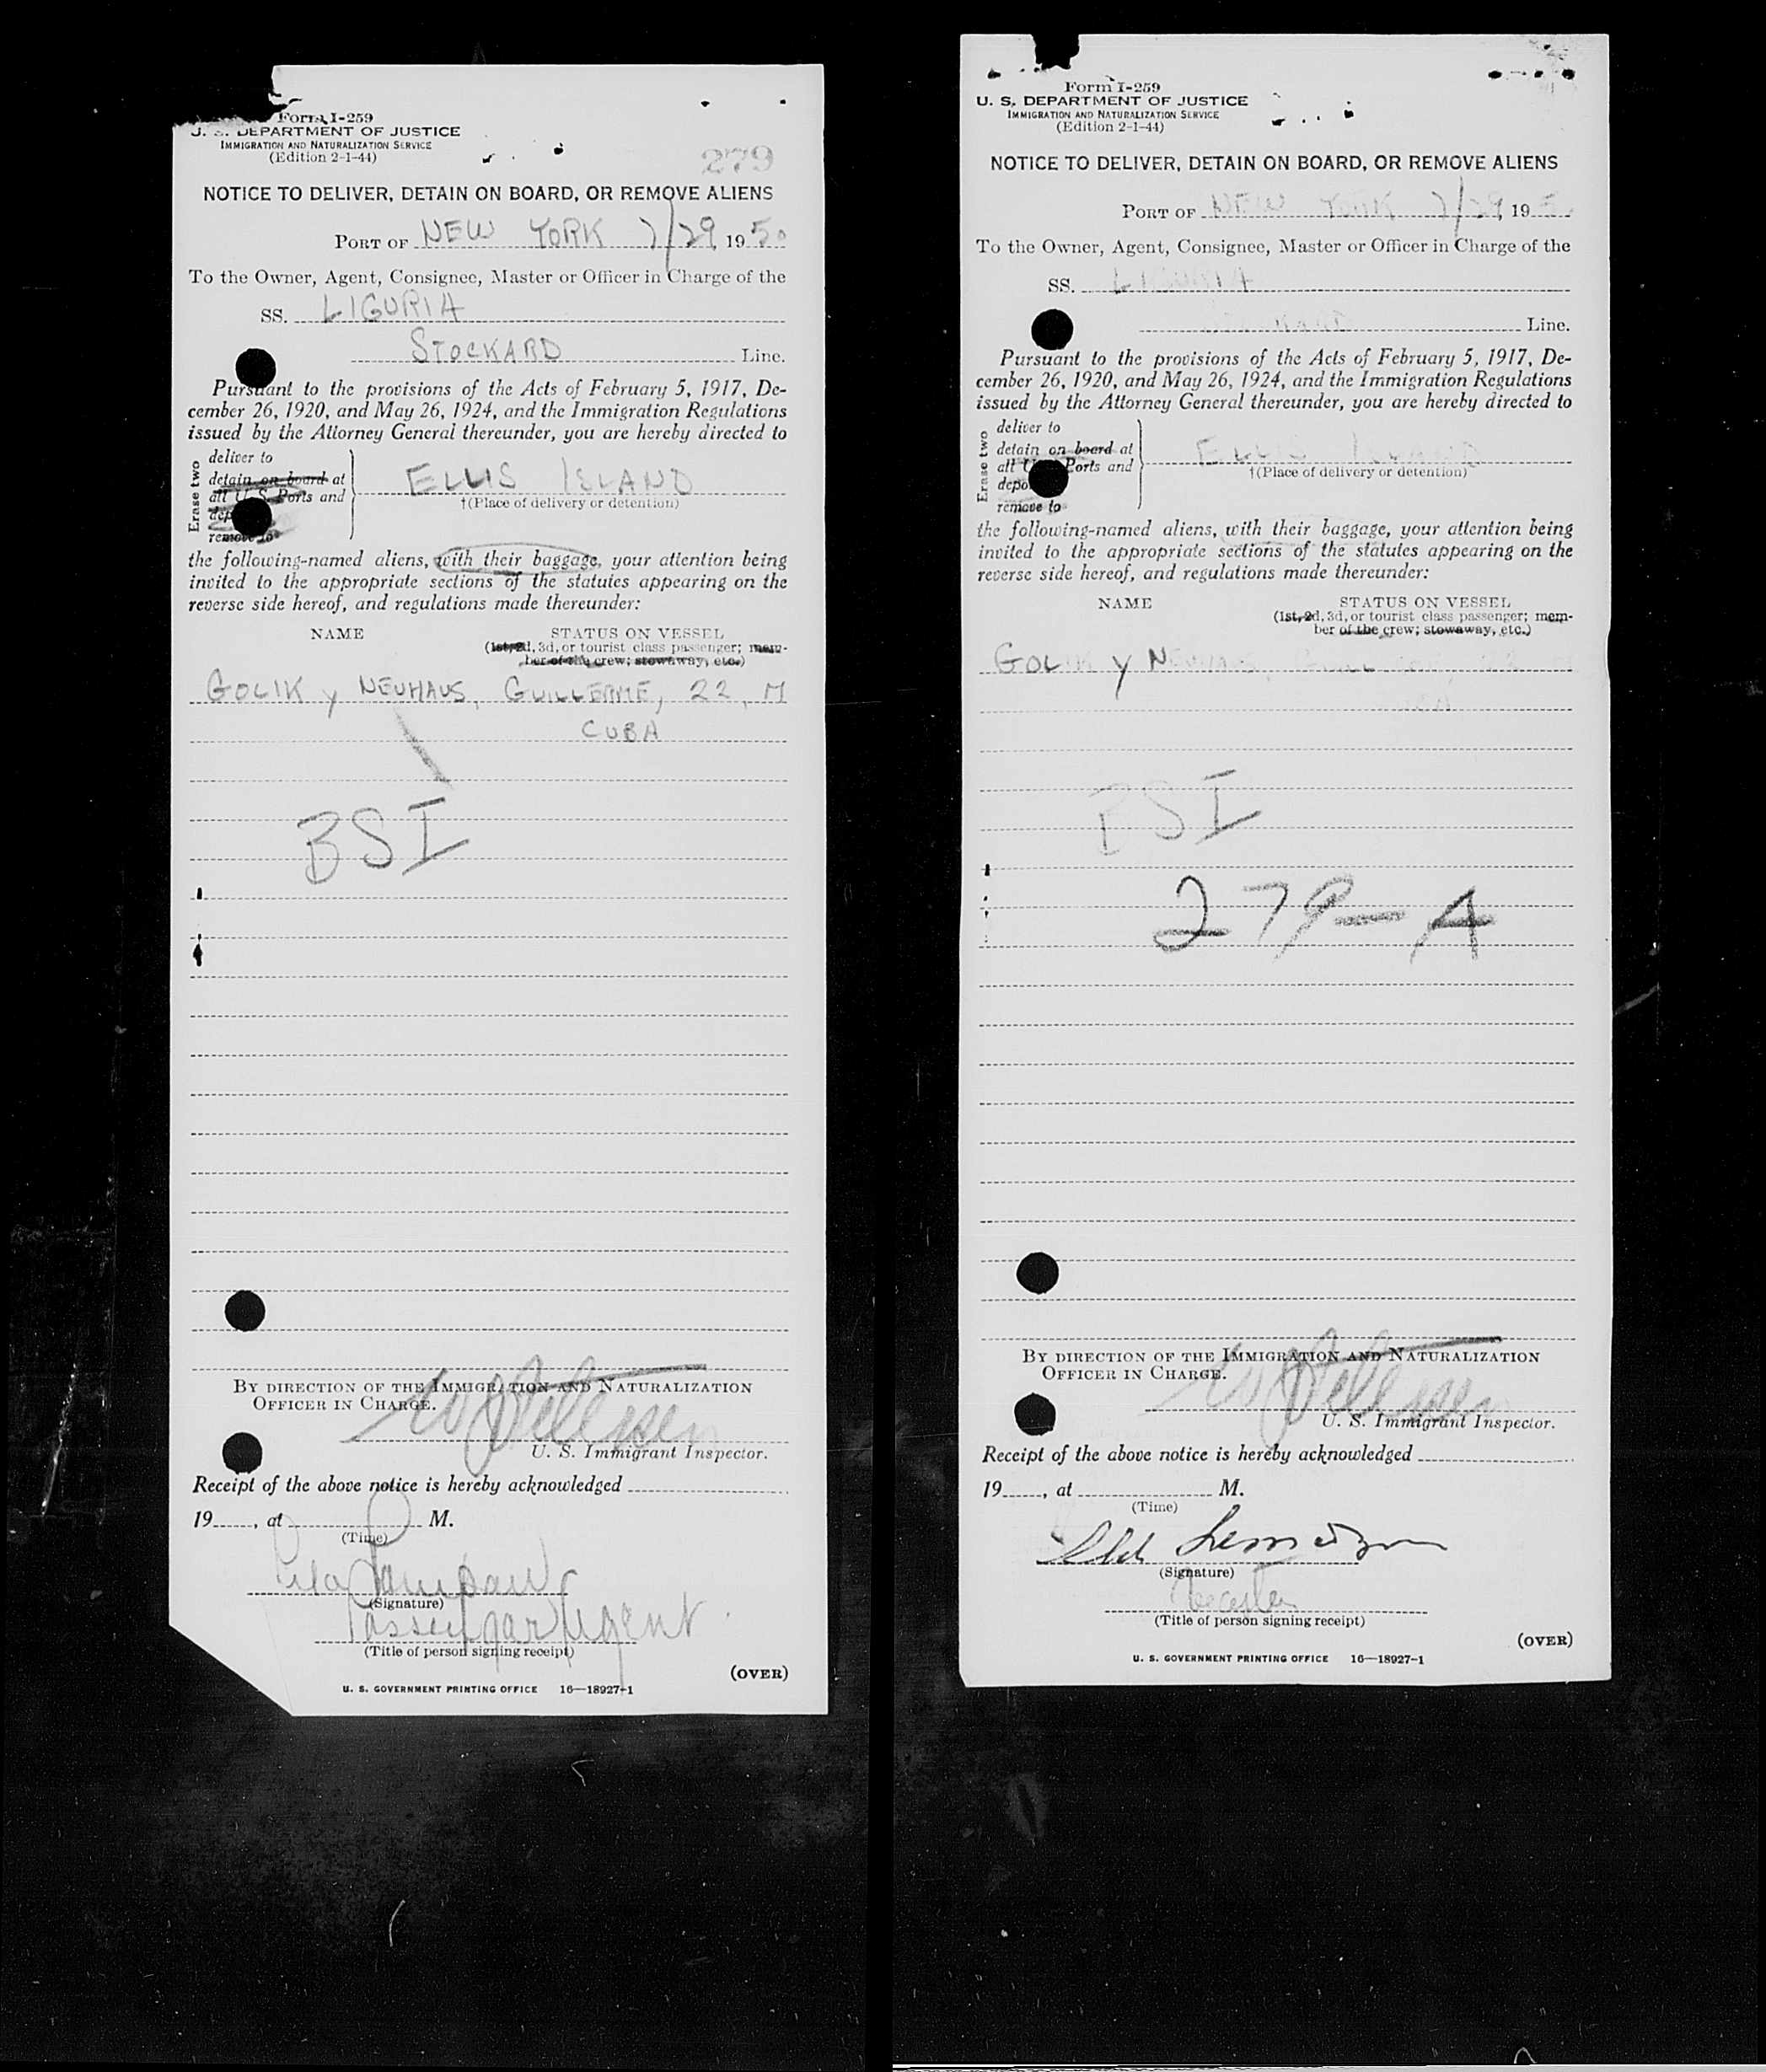 Form I-259
U. S. DEPARTMENT OF JUSTICE
IMMIGRATION AND NATURALIZATION SERVICE
(Edition 2-1-44)
279
NOTICE TO DELIVER, DETAIN ON BOARD, OR REMOVE ALIENS
PORT OF NEW YORK 7/29 1950
To the Owner, Agent, Consignee, Master or Officer in Charge of the
SS. LIGURIA
STOCKARD Line.
Pursuant to the provisions of the Acts of February 5, 1917, De-
cember 26, 1920, and May 26, 1924, and the Immigration Regulations
issued by the Attorney General thereunder, you are hereby directed to
Erase two
deliver to
detain on board at
all U. S. Ports and
remove to
ELLIS ISLAND
†(Place of delivery or detention)
the following-named aliens, with their baggage, your attention being
invited to the appropriate sections of the statutes appearing on the
reverse side hereof, and regulations made thereunder:
NAME STATUS ON VESSEL
(1st, 2d, 3d, or tourist class passenger; mem-
ber of the crew; stowaway, etc.)
GOLIK y NEUHAUS, GUILLERME, 22, M
CUBA
BSI
BY DIRECTION OF THE IMMIGRATION AND NATURALIZATION
OFFICER IN CHARGE.
U. S. Immigrant Inspector.
Receipt of the above notice is hereby acknowledged
19 , at M.
(Time)
(Signature)
Passengar Agent
(Title of person signing receipt)
(OVER)
U. S. GOVERNMENT PRINTING OFFICE 16—18927-1
Form I-259
U. S. DEPARTMENT OF JUSTICE
IMMIGRATION AND NATURALIZATION SERVICE
(Edition 2-1-44)
NOTICE TO DELIVER, DETAIN ON BOARD, OR REMOVE ALIENS
PORT OF NEW YORK 7/29 195
To the Owner, Agent, Consignee, Master or Officer in Charge of the
SS. LIGURIA
Line.
Pursuant to the provisions of the Acts of February 5, 1917, De-
cember 26, 1920, and May 26, 1924, and the Immigration Regulations
issued by the Attorney General thereunder, you are hereby directed to
Erase two
deliver to
detain on board at
all U. S. Ports and
remove to
ELLIS ISLAND
†(Place of delivery or detention)
the following-named aliens, with their baggage, your attention being
invited to the appropriate sections of the statutes appearing on the
reverse side hereof, and regulations made thereunder:
NAME STATUS ON VESSEL
(1st, 2d, 3d, or tourist class passenger; mem-
ber of the crew; stowaway, etc.)
GOLIK y NEUHAUS
BSI
279-A
BY DIRECTION OF THE IMMIGRATION AND NATURALIZATION
OFFICER IN CHARGE.
U. S. Immigrant Inspector.
Receipt of the above notice is hereby acknowledged
19 , at M.
(Time)
(Signature)
(Title of person signing receipt)
(OVER)
U. S. GOVERNMENT PRINTING OFFICE 16—18927-1